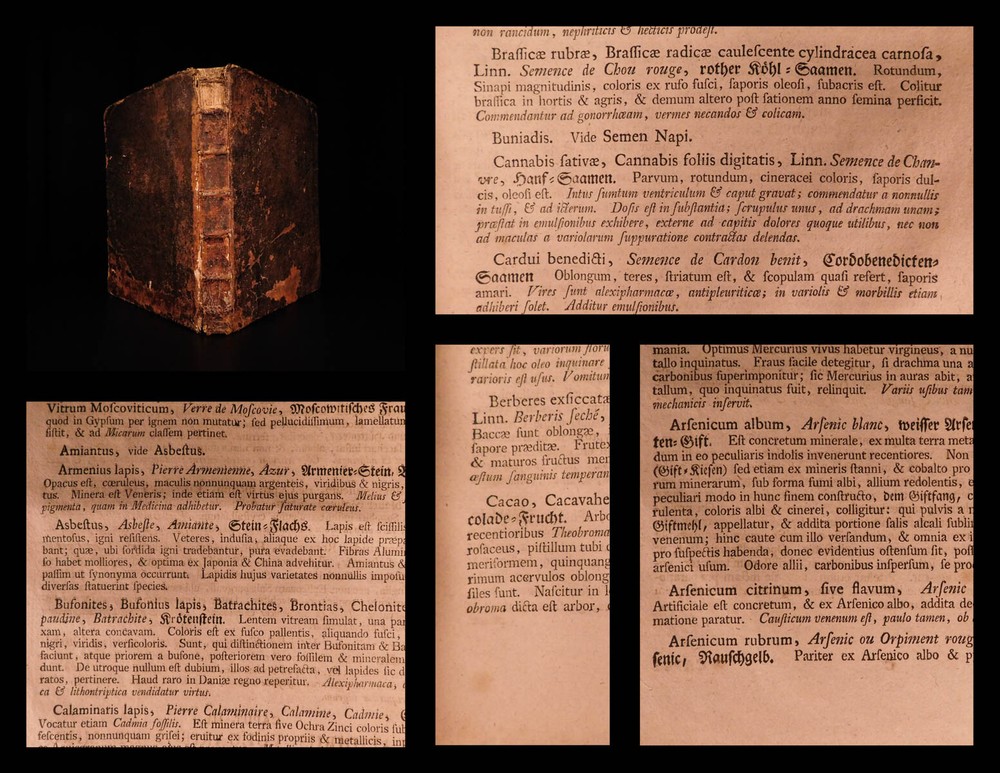 non rancidum, nephriticis & hecticis prodest.
Braſſicæ rubræ, Braſſicæ radicæ cauleſcente cylindracea carnoſa,
Linn. Semence de Chou rouge, rother Köhl-Saamen. Rotundum,
Sinapi magnitudinis, coloris ex rufo fuſci, ſaporis oleoſi, ſubacris eſt. Colitur
braſſica in hortis & agris, & demum altero poſt ſationem anno ſemina perficit.
Commendantur ad gonorrhœam, vermes necandos & colicam.
Buniadis. Vide Semen Napi.
Cannabis ſativæ, Cannabis foliis digitatis, Linn. Semence de Chan-
vre, Hanf-Saamen. Parvum, rotundum, cineracei coloris, ſaporis dul-
cis, oleoſi eſt. Intus ſumtum ventriculum & caput gravat; commendatur a nonnullis
in tuſſi, & ad icterum. Doſis eſt in ſubſtantia; ſcrupulus unus, ad drachmam unam;
præſtat in emulſionibus exhibere, externe ad capitis dolores quoque utilibus, nec non
ad maculas a variolarum ſuppuratione contractas delendas.
Cardui benedicti, Semence de Cardon benit, Cordobenedicten-
Saamen Oblongum, teres, ſtriatum eſt, & ſcopulam quaſi refert, ſaporis
amari. Vires ſunt alexipharmacæ, antipleuriticæ; in variolis & morbillis etiam
adhiberi ſolet. Additur emulſionibus.
Vitrum Moſcoviticum, Verre de Moſcovie, Moſcowitiſches Frau
quod in Gypſum per ignem non mutatur; ſed pellucidiſſimum, lamellatum
ſiſtit, & ad Micarum claſſem pertinet.
Amiantus, vide Asbeſtus.
Armenius lapis, Pierre Armenienne, Azur, Armenier-Stein,
Opacus eſt, cœruleus, maculis nonnunquam argenteis, viridibus & nigris,
tus. Minera eſt Veneris; inde etiam eſt virtus ejus purgans. Melius &
pigmenta, quam in Medicina adhibetur. Probatur ſaturate cœruleus.
Asbeſtus, Asbeſte, Amiante, Stein-Flachs. Lapis eſt ſciſſilis
mentoſus, igni reſiſtens. Veteres, induſia, aliaque ex hoc lapide præpa
bant; quæ, ubi ſordida igni tradebantur, pura evadebant. Fibras Alumin
ſo habet molliores, & optima ex Japonia & China advehitur. Amiantus &
paſſim ut ſynonyma occurrunt. Lapidis hujus varietates nonnullis impoſu
diverſas ſtatuerint ſpecies.
Bufonites, Bufonius lapis, Batrachites, Brontias, Chelonite
paudine, Batrachite, Krötenſtein. Lentem vitream ſimulat, una par
xam, altera concavam. Coloris eſt ex fuſco pallentis, aliquando fuſci,
nigri, viridis, verſicoloris. Sunt, qui diſtinctionem inter Bufonitam & Ba
faciunt, atque priorem a bufone, poſteriorem vero foſſilem & mineralem
dunt. De utroque nullum eſt dubium, illos ad petrefacta, vel lapides ſic d
ratos, pertinere. Haud raro in Daniæ regno reperitur. Alexipharmaca,
ca & lithontriptica vendidatur virtus.
Calaminaris lapis, Pierre Calaminaire, Calamine, Cadmie,
Vocatur etiam Cadmia foſſilis. Eſt minera terrà ſive Ochra Zinci coloris ſub
feſcentis, nonnunquam griſei; eruitur ex fodinis propriis & metallicis,
expers ſit, variorum floru
ſtillata hoc oleo inquinare
rarioris eſt uſus. Vomitum
Berberes exſiccatæ
Linn. Berberis ſeché,
Baccæ ſunt oblongæ,
ſapore præditæ. Frutex
& maturos fructus men
æſtum ſanguinis temperan
Cacao, Cacavahe
colade-Frucht. Arbo
recentioribus Theobroma
roſaceus, piſtillum tubi
meriformem, quinquang
rimum acervulos oblong
ſiles ſunt. Naſcitur in
obroma dicta eſt arbor,
mania. Optimus Mercurius vivus habetur virgineus, a nu
tallo inquinatus. Fraus facile detegitur, ſi drachma una a
carbonibus ſuperimponitur; ſic Mercurius in auras abit, a
tallum, quo inquinatus fuit, relinquit. Variis uſibus tam
mechanicis inſervit.
Arſenicum album, Arſenic blanc, weiſſer Arſe
ten-Gift. Eſt concretum minerale, ex multa terra meta
dum in eo peculiaris indolis invenerunt recentiores. Non
(Gift-Kieſen) ſed etiam ex mineris ſtanni, & cobalto pro
rum minerarum, ſub forma fumi albi, allium redolentis, e
peculiari modo in hunc finem conſtructo, dem Giftfang,
rulenta, coloris albi & cinerei, colligitur: qui pulvis a r
Giftmehl, appellatur, & addita portione ſalis alcali ſubli
venenum; hinc caute cum illo verſandum, & omnia ex i
pro ſuſpectis habenda, donec evidentius oſtenſum ſit, poſ
arſenici uſum. Odore allii, carbonibus inſperſum, ſe pro
Arſenicum citrinum, ſive flavum, Arſenic
Artificiale eſt concretum, & ex Arſenico albo, addita de
matione paratur. Cauſticum venenum eſt, paulo tamen, ob
Arſenicum rubrum, Arſenic ou Orpiment roug
ſenic, Rauſchgelb. Pariter ex Arſenico albo & p